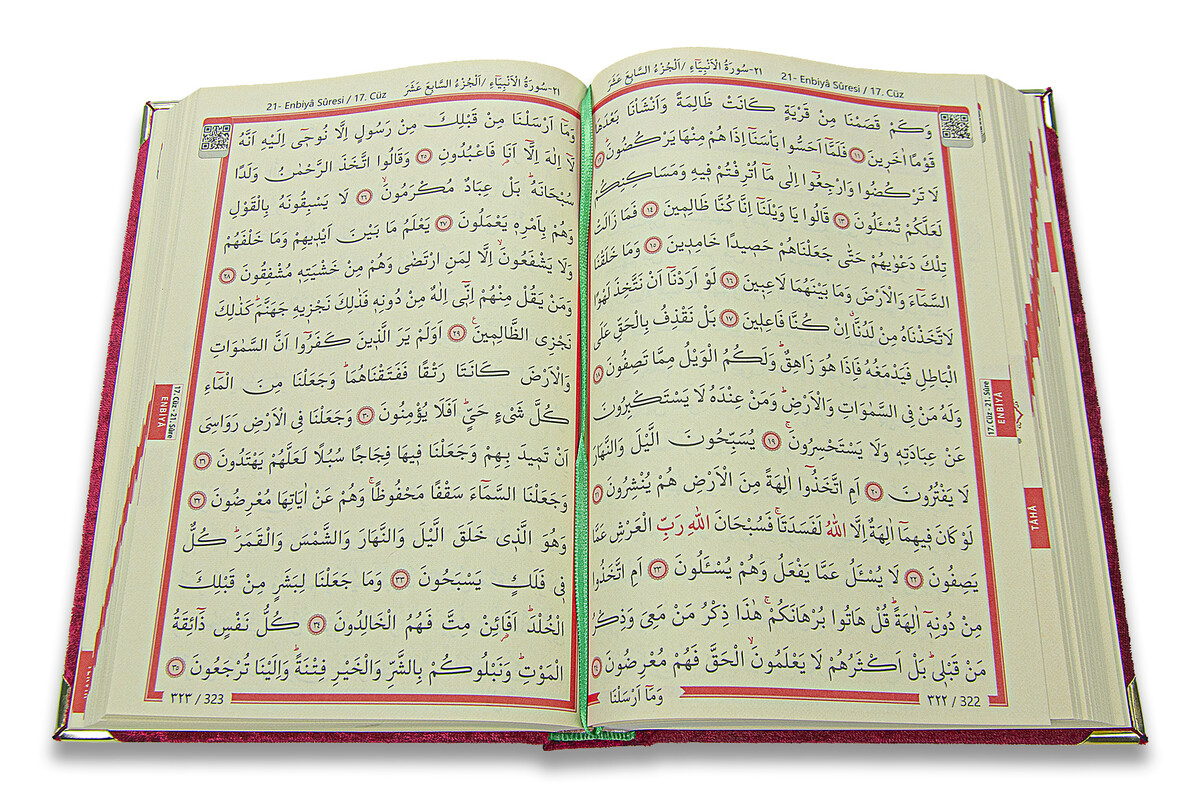 ٢١-سُورَةُ الْاَنْبِيَٓاءِ /اَلْجُزْءُ السَّابِعَ عَشَرَ
21- Enbiyâ Sûresi / 17. Cüz
وَكَمْ قَصَمْنَا مِنْ قَرْيَةٍ كَانَتْ ظَالِمَةً وَاَنْشَأْنَا بَعْدَهَا
قَوْمًا اٰخَر۪ينَ ﴿١١﴾ فَلَمَّٓا اَحَسُّوا بَأْسَنَٓا اِذَا هُمْ مِنْهَا يَرْكُضُونَۜ ﴿١٢﴾
لَا تَرْكُضُوا وَارْجِعُٓوا اِلٰى مَٓا اُتْرِفْتُمْ ف۪يهِ وَمَسَاكِنِكُمْ
لَعَلَّكُمْ تُسْـَٔلُونَ ﴿١٣﴾ قَالُوا يَا وَيْلَنَٓا اِنَّا كُنَّا ظَالِم۪ينَ ﴿١٤﴾ فَمَا زَالَتْ
تِلْكَ دَعْوٰيهُمْ حَتّٰى جَعَلْنَاهُمْ حَص۪يدًا خَامِد۪ينَ ﴿١٥﴾ وَمَا خَلَقْنَا
السَّمَٓاءَ وَالْاَرْضَ وَمَا بَيْنَهُمَا لَاعِب۪ينَ ﴿١٦﴾ لَوْ اَرَدْنَٓا اَنْ نَتَّخِذَ لَهْوًا
لَاتَّخَذْنَاهُ مِنْ لَدُنَّاۗ اِنْ كُنَّا فَاعِل۪ينَ ﴿١٧﴾ بَلْ نَقْذِفُ بِالْحَقِّ عَلَى
الْبَاطِلِ فَيَدْمَغُهُ فَاِذَا هُوَ زَاهِقٌۜ وَلَكُمُ الْوَيْلُ مِمَّا تَصِفُونَ ﴿١٨﴾
وَلَهُ مَنْ فِي السَّمٰوَاتِ وَالْاَرْضِۜ وَمَنْ عِنْدَهُ لَا يَسْتَكْبِرُونَ
عَنْ عِبَادَتِه۪ وَلَا يَسْتَحْسِرُونَۚ ﴿١٩﴾ يُسَبِّحُونَ الَّيْلَ وَالنَّهَارَ
لَا يَفْتُرُونَ ﴿٢٠﴾ اَمِ اتَّخَذُٓوا اٰلِهَةً مِنَ الْاَرْضِ هُمْ يُنْشِرُونَ ﴿٢١﴾
لَوْ كَانَ ف۪يهِمَٓا اٰلِهَةٌ اِلَّا اللّٰهُ لَفَسَدَتَاۚ فَسُبْحَانَ اللّٰهِ رَبِّ الْعَرْشِ عَمَّا
يَصِفُونَ ﴿٢٢﴾ لَا يُسْـَٔلُ عَمَّا يَفْعَلُ وَهُمْ يُسْـَٔلُونَ ﴿٢٣﴾ اَمِ اتَّخَذُوا
مِنْ دُونِه۪ٓ اٰلِهَةًۜ قُلْ هَاتُوا بُرْهَانَكُمْۚ هٰذَا ذِكْرُ مَنْ مَعِيَ وَذِكْرُ
مَنْ قَبْل۪يۜ بَلْ اَكْثَرُهُمْ لَا يَعْلَمُونَۙ الْحَقَّ فَهُمْ مُعْرِضُونَ ﴿٢٤﴾
وَمَٓا اَرْسَلْنَا
٣٢٢ / 322
17. Cüz - 21. Sûre
ENBİYÂ
TÂHÂ
٢١-سُورَةُ الْاَنْبِيَٓاءِ /اَلْجُزْءُ السَّابِعَ عَشَرَ
21- Enbiyâ Sûresi / 17. Cüz
وَمَٓا اَرْسَلْنَا مِنْ قَبْلِكَ مِنْ رَسُولٍ اِلَّا نُوح۪ٓي اِلَيْهِ اَنَّهُ
لَٓا اِلٰهَ اِلَّٓا اَنَا۬ فَاعْبُدُونِ ﴿٢٥﴾ وَقَالُوا اتَّخَذَ الرَّحْمٰنُ وَلَدًا
سُبْحَانَهُۜ بَلْ عِبَادٌ مُكْرَمُونَۙ ﴿٢٦﴾ لَا يَسْبِقُونَهُ بِالْقَوْلِ
وَهُمْ بِاَمْرِه۪ يَعْمَلُونَ ﴿٢٧﴾ يَعْلَمُ مَا بَيْنَ اَيْد۪يهِمْ وَمَا خَلْفَهُمْ
وَلَا يَشْفَعُونَۙ اِلَّا لِمَنِ ارْتَضٰى وَهُمْ مِنْ خَشْيَتِه۪ مُشْفِقُونَ ﴿٢٨﴾
وَمَنْ يَقُلْ مِنْهُمْ اِنّ۪ٓي اِلٰهٌ مِنْ دُونِه۪ فَذٰلِكَ نَجْز۪يهِ جَهَنَّمَۜ كَذٰلِكَ
نَجْزِي الظَّالِم۪ينَ۟ ﴿٢٩﴾ اَوَلَمْ يَرَ الَّذ۪ينَ كَفَرُٓوا اَنَّ السَّمٰوَاتِ
وَالْاَرْضَ كَانَتَا رَتْقًا فَفَتَقْنَاهُمَاۜ وَجَعَلْنَا مِنَ الْمَٓاءِ
كُلَّ شَيْءٍ حَيٍّۜ اَفَلَا يُؤْمِنُونَ ﴿٣٠﴾ وَجَعَلْنَا فِي الْاَرْضِ رَوَاسِيَ
اَنْ تَم۪يدَ بِهِمْ وَجَعَلْنَا ف۪يهَا فِجَاجًا سُبُلًا لَعَلَّهُمْ يَهْتَدُونَ ﴿٣١﴾
وَجَعَلْنَا السَّمَٓاءَ سَقْفًا مَحْفُوظًاۚ وَهُمْ عَنْ اٰيَاتِهَا مُعْرِضُونَ ﴿٣٢﴾
وَهُوَ الَّذ۪ي خَلَقَ الَّيْلَ وَالنَّهَارَ وَالشَّمْسَ وَالْقَمَرَۜ كُلٌّ
ف۪ي فَلَكٍ يَسْبَحُونَ ﴿٣٣﴾ وَمَا جَعَلْنَا لِبَشَرٍ مِنْ قَبْلِكَ
الْخُلْدَۜ اَفَا۬ئِنْ مِتَّ فَهُمُ الْخَالِدُونَ ﴿٣٤﴾ كُلُّ نَفْسٍ ذَٓائِقَةُ
الْمَوْتِۜ وَنَبْلُوكُمْ بِالشَّرِّ وَالْخَيْرِ فِتْنَةًۜ وَاِلَيْنَا تُرْجَعُونَ ﴿٣٥﴾
٣٢٣ / 323
17. Cüz - 21. Sûre
ENBİYÂ